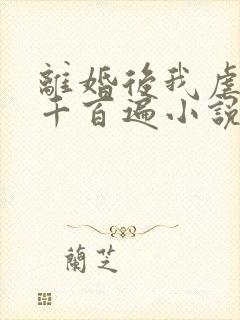 離婚後我虐
千百遍小說
蘭芝